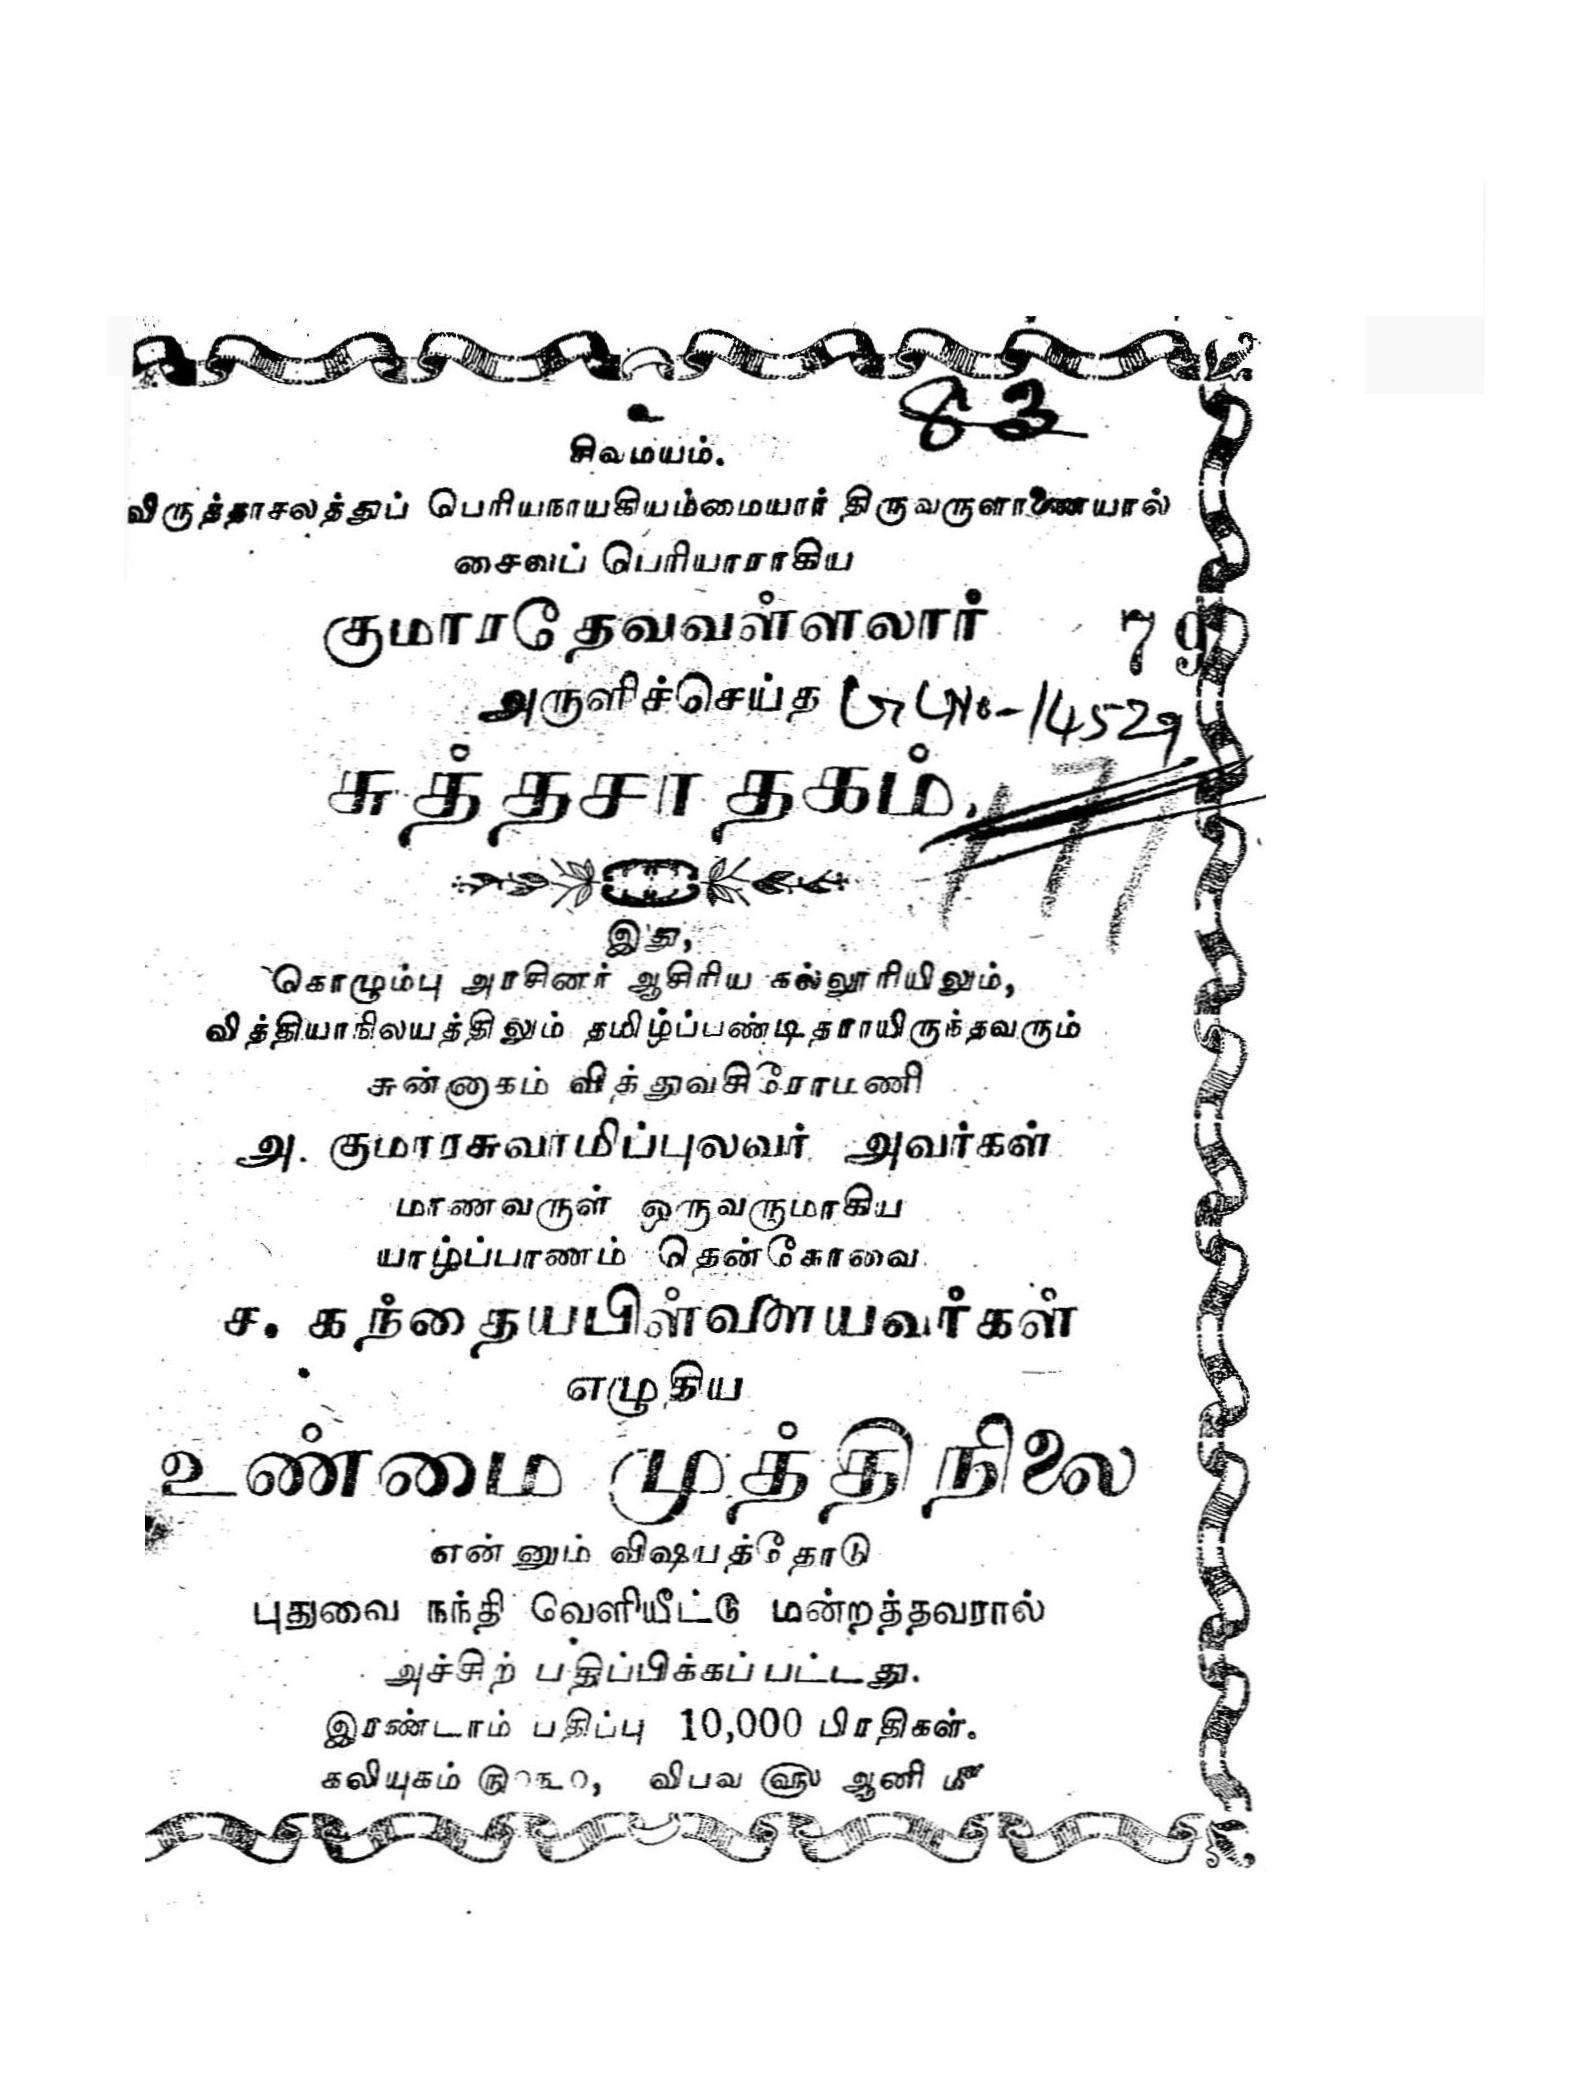 உ
83
சிவமயம்.
விருத்தாசலத்துப் பெரியநாயகியம்மையார் திருவருளாணையால்
சைவப் பெரியாராகிய
குமாரதேவவள்ளலார் 79
அருளிச்செய்த No-14529
சுத்தசாதகம்.
177
இது,
கொழும்பு அரசினர் ஆசிரிய கல்லூரியிலும்,
வித்தியாநிலயத்திலும் தமிழ்ப்பண்டிதராயிருந்தவரும்
சுன்னாகம் வித்துவசிரோமணி
அ. குமாரசுவாமிப்புலவர் அவர்கள்
மாணவருள் ஒருவருமாகிய
யாழ்ப்பாணம் தென்கோவை
ச. கந்தையபிள்ளையவர்கள்
எழுகிய
உண்மை முத்திநிலை
என்னும் விஷயத்தோடு
புதுவை நந்தி வெளியீட்டு மன்றத்தவரால்
அச்சிற் பதிப்பிக்கப்பட்டது.
இரண்டாம் பதிப்பு 10,000 பிரதிகள்.
கலியுகம் ௫௦௩௦, விபவ ௵ ஆனி ௴